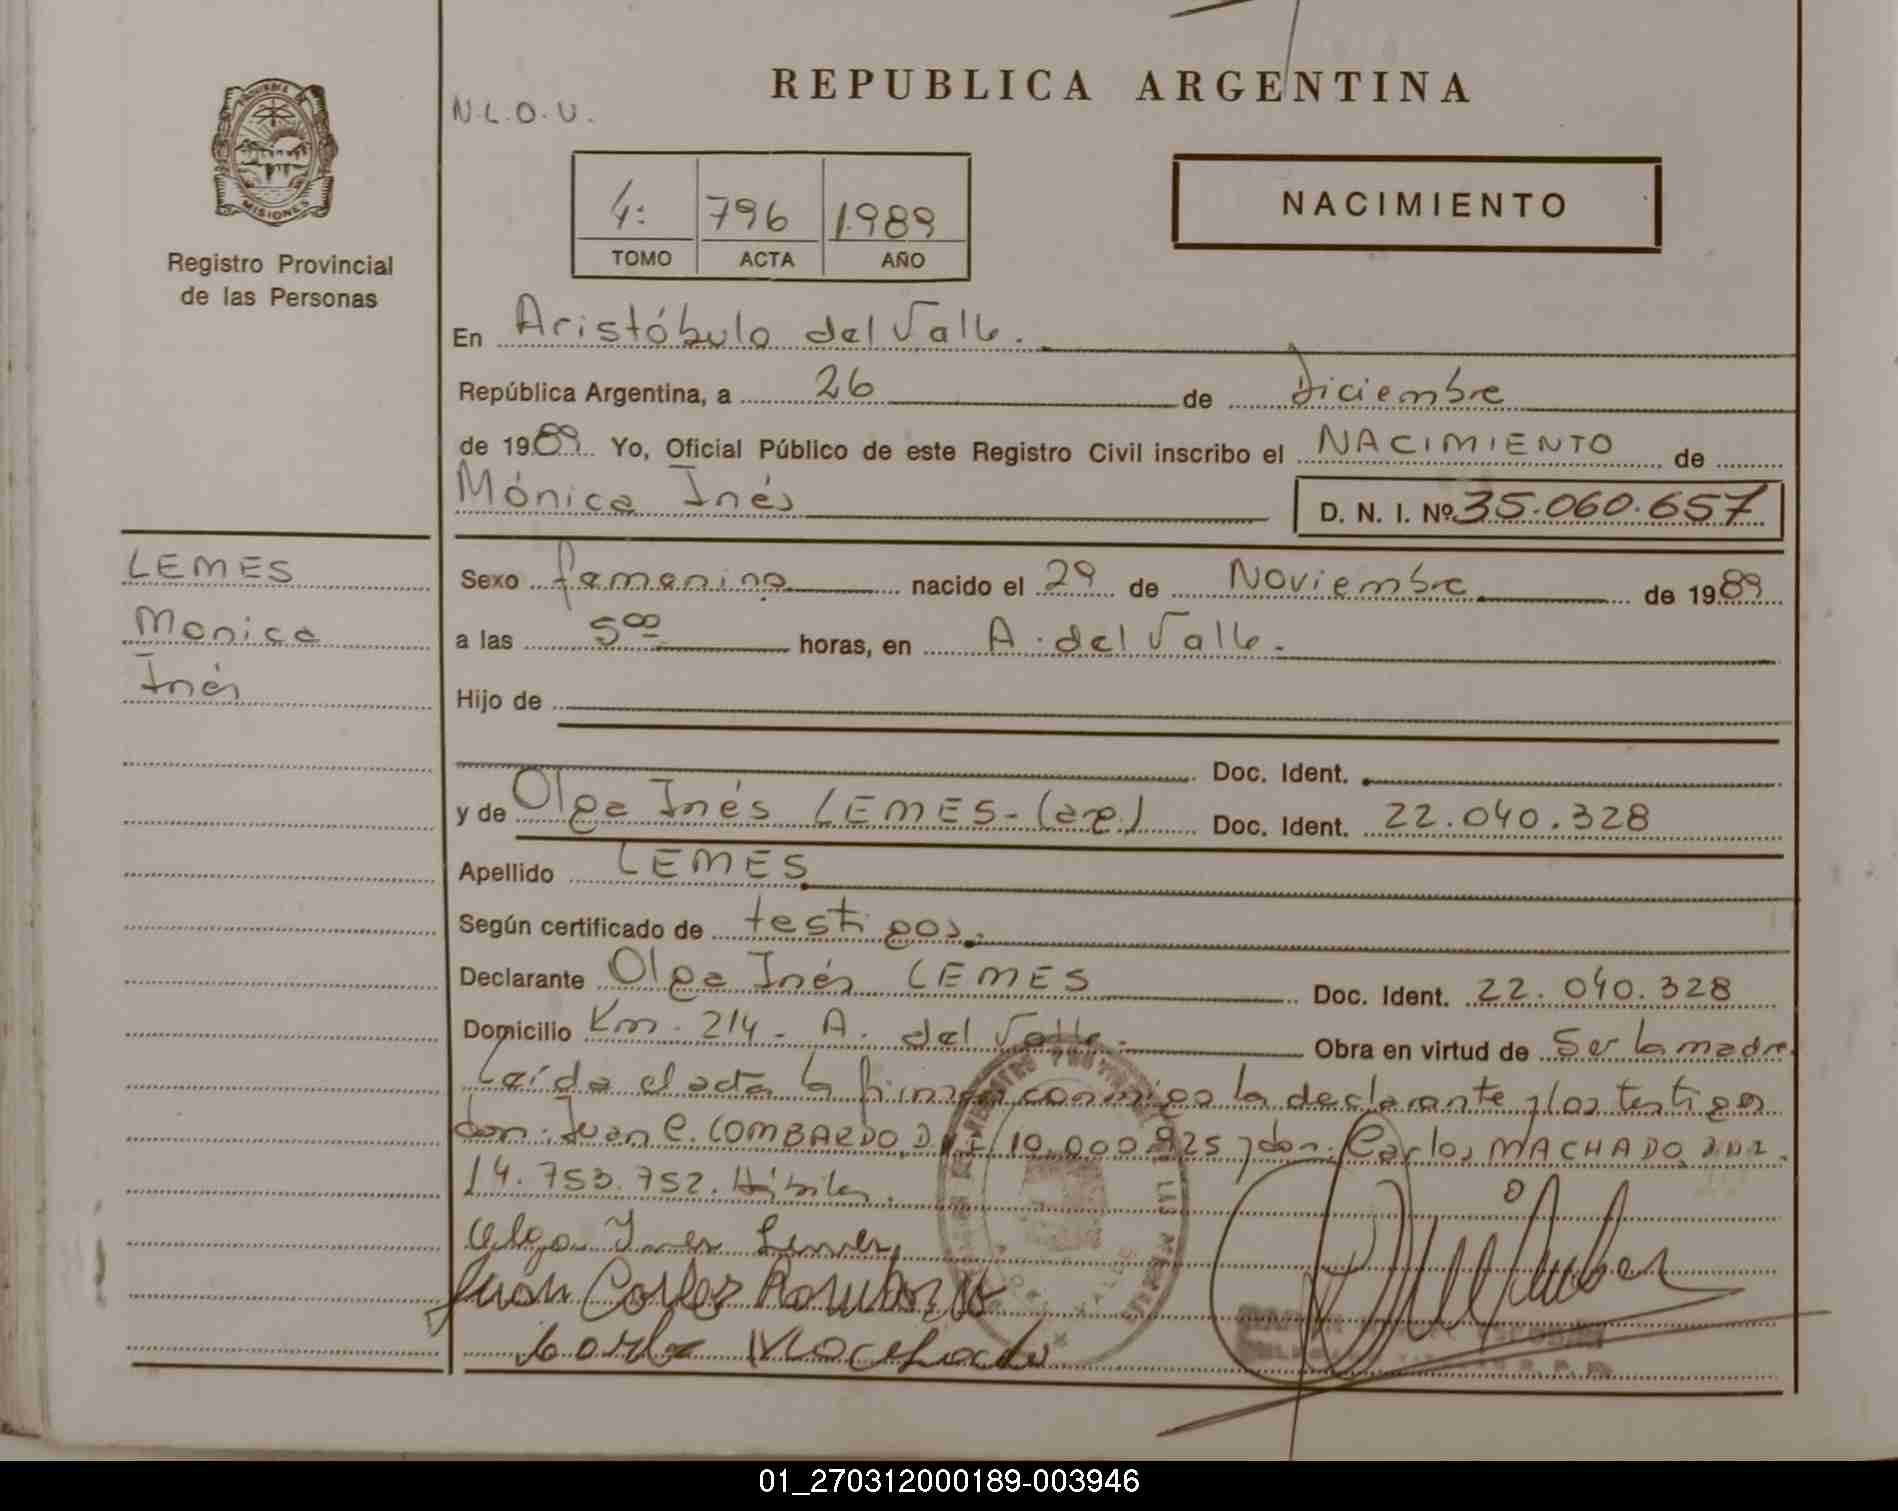 N.L.O.U.
REPUBLICA ARGENTINA
MISIONES
Registro Provincial
de las Personas
4: 796 1.989
TOMO ACTA AÑO
NACIMIENTO
En Aristóbulo del Valle.
República Argentina, a 26 de Diciembre
de 1989. Yo, Oficial Público de este Registro Civil inscribo el NACIMIENTO de
Mónica Inés D. N. I. Nº 35.060.657
LEMES
Monica
Inés
Sexo femenino nacido el 29 de Noviembre de 1989
a las 5 00 horas, en A. del Valle.
Hijo de
Doc. Ident.
y de Olga Inés LEMES-(arg.) Doc. Ident. 22.040.328
Apellido LEMES
Según certificado de testigos.
Declarante Olga Inés LEMES Doc. Ident. 22.040.328
Domicilio Km. 214 - A. del Valle. Obra en virtud de Ser la madre.
Leída el acta la firma conmigo la declarante y los testigos
don: Juan C. LOMBARDO, D.N.I. 10.000.825 y don: Carlos MACHADO D.N.I.
14.753.752. Hábiles.
Olga Ines Lemes
Juan Carlos
Carlos Machado
01_270312000189-003946